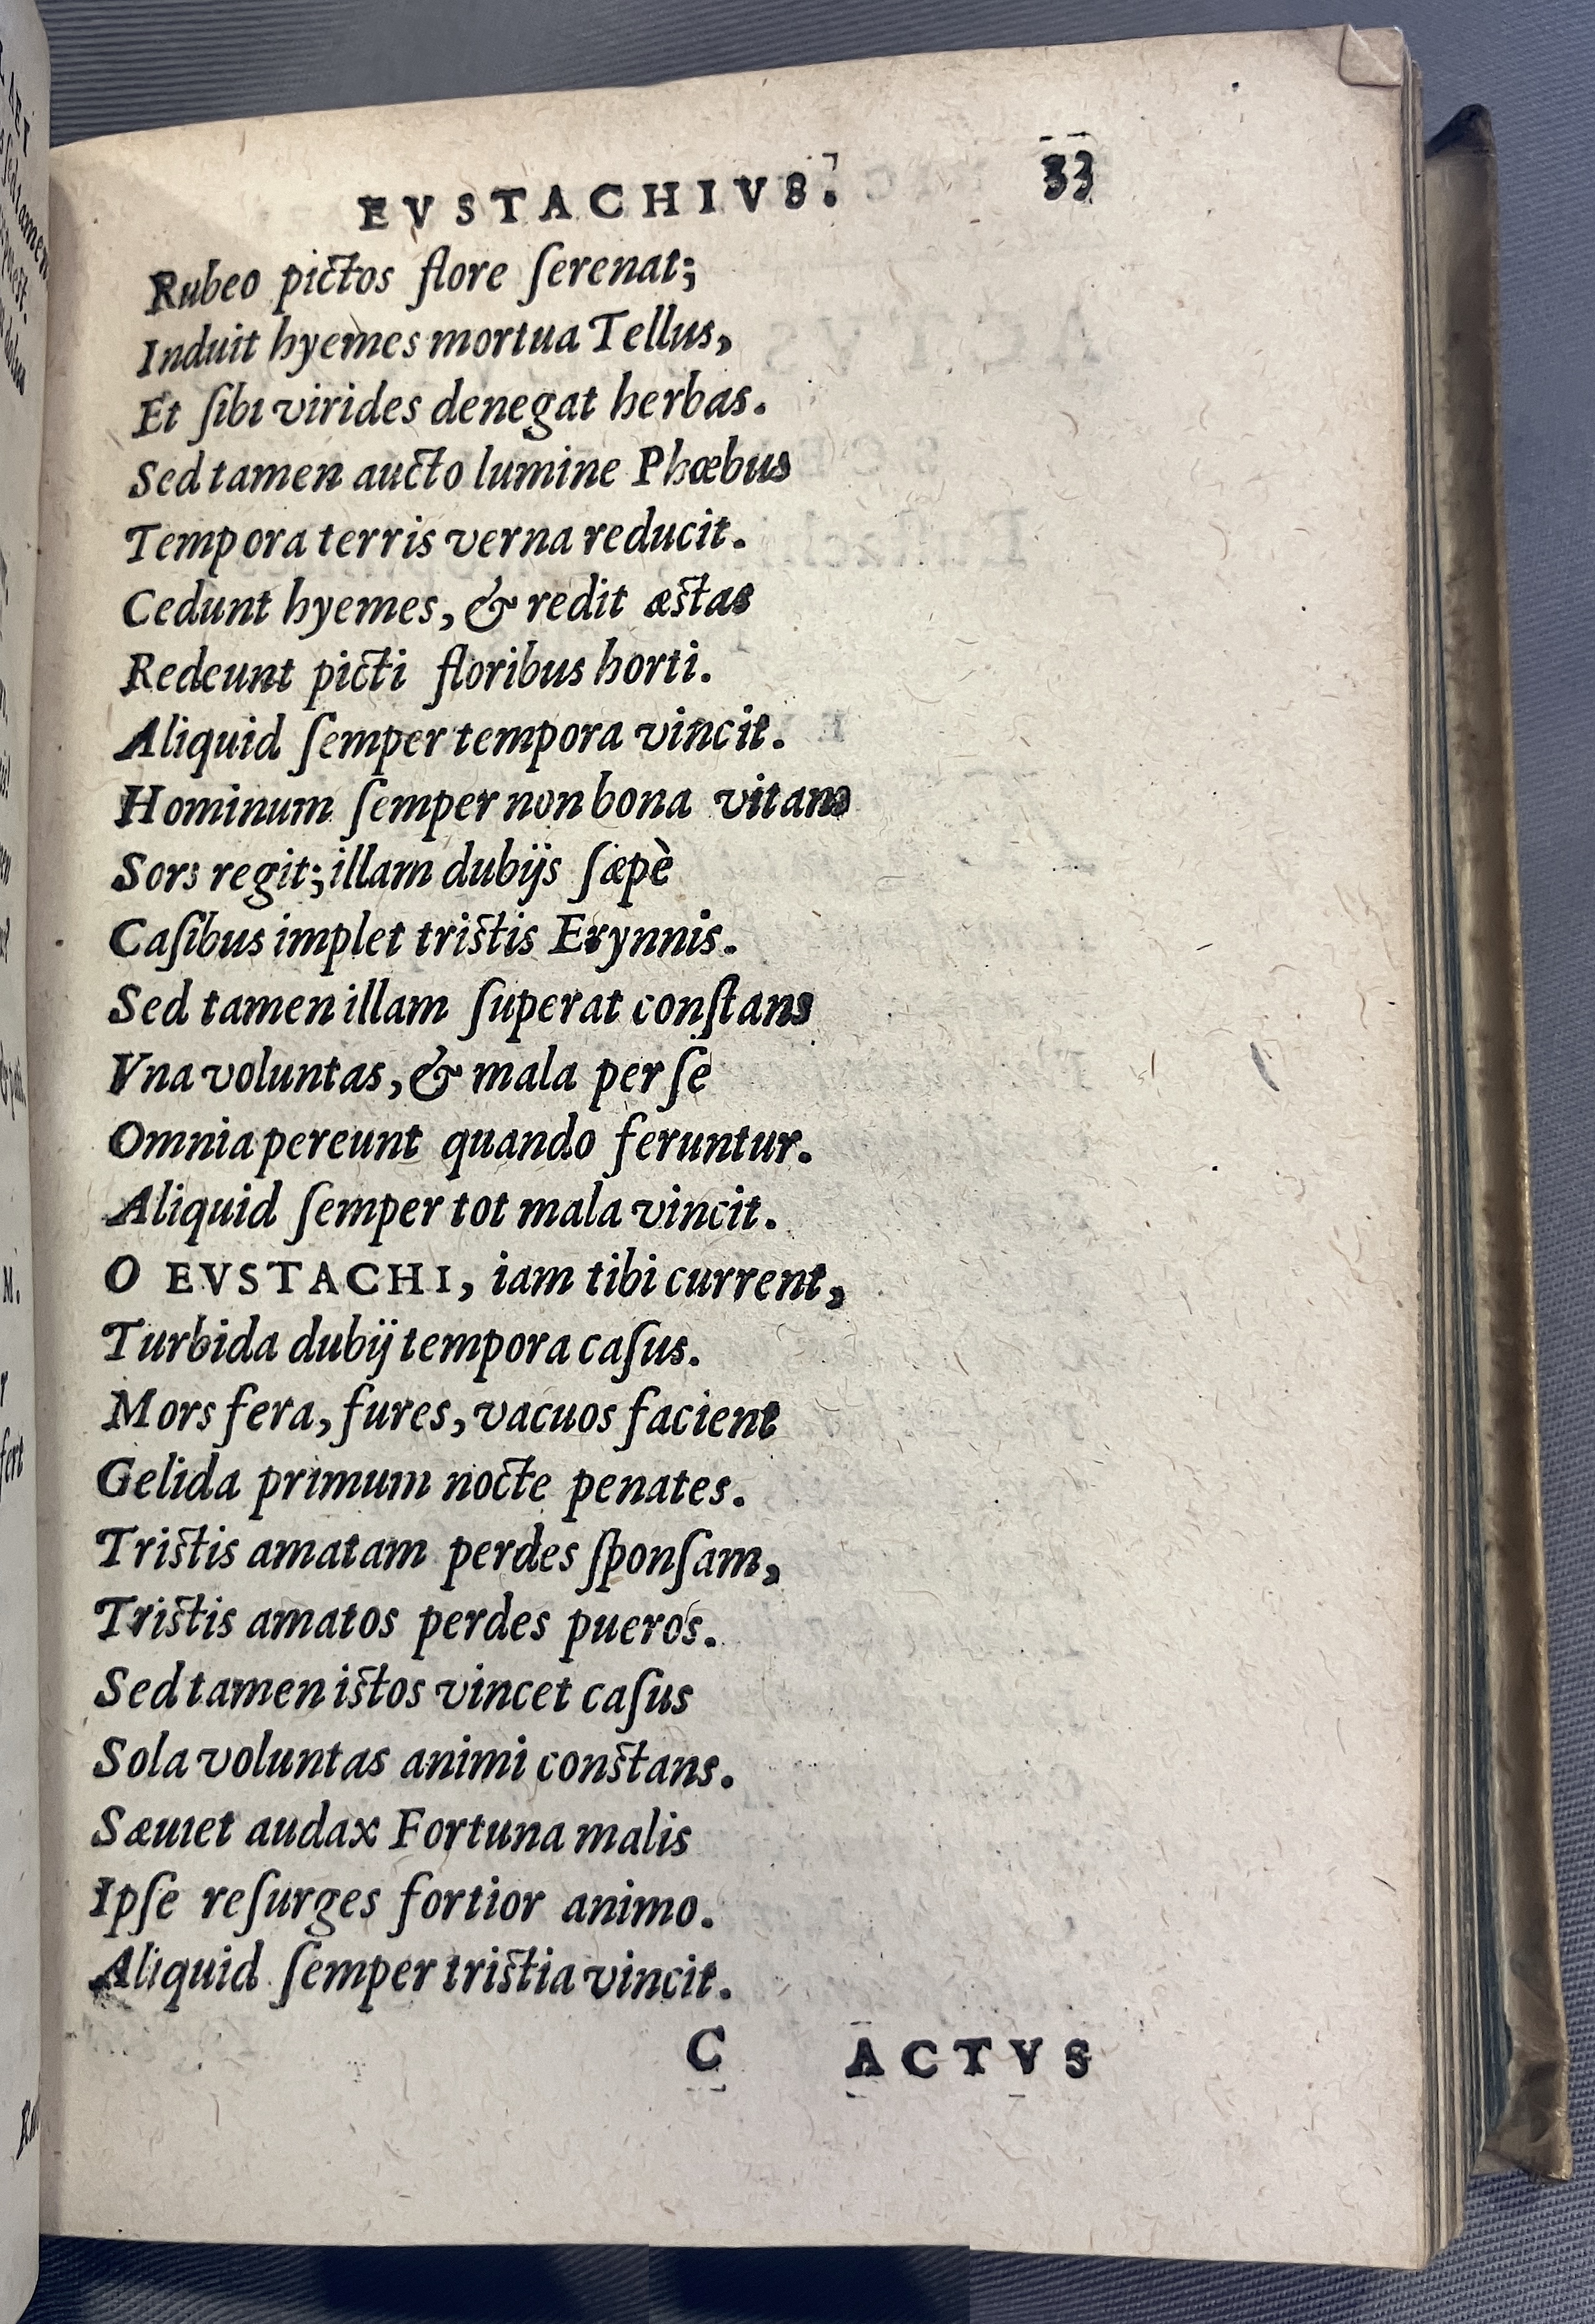 EVSTACHIVS. 33
Rubeo pictos flore ſerenat;
Induit hyemes mortua Tellus,
Et ſibi virides denegat herbas.
Sed tamen aucto lumine Phœbus
Tempora terris verna reducit.
Cedunt hyemes, & redit æstas
Redeunt picti floribus horti.
Aliquid ſemper tempora vincit.
Hominum ſemper non bona vitam
Sors regit; illam dubijs ſæpè
Caſibus implet tristis Erynnis.
Sed tamen illam ſuperat conſtans
Vna voluntas, & mala per ſe
Omnia pereunt quando feruntur.
Aliquid ſemper tot mala vincit.
O EVSTACHI, iam tibi current,
Turbida dubij tempora caſus.
Mors fera, fures, vacuos facient
Gelida primum nocte penates.
Tristis amatam perdes ſponſam,
Tristis amatos perdes pueros.
Sed tamen istos vincet caſus
Sola voluntas animi constans.
Sæuiet audax Fortuna malis
Ipſe reſurges fortior animo.
Aliquid ſemper tristia vincit.
C ACTVS